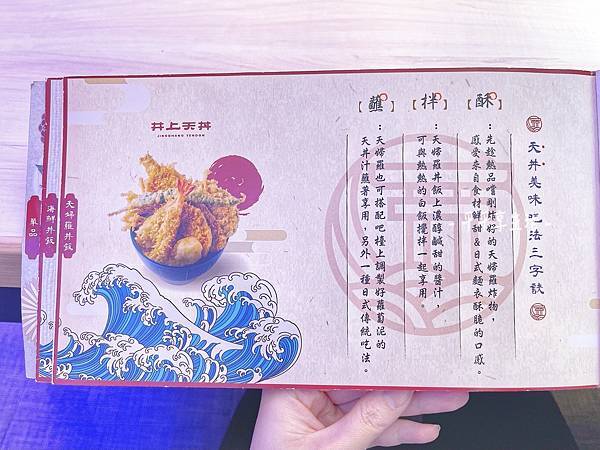 天丼美味吃法三字訣
【酥】
：先趁熱品嚐剛炸好的天婦羅炸物，
感受來自食材鮮甜&日式麵衣酥脆的口感。
【拌】
：天婦羅丼飯上濃醇鹹甜的醬汁，
可與熱熱的白飯攪拌一起享用。
【蘸】
：天婦羅也可搭配吧檯上調製好蘿蔔泥的
天丼汁蘸著享用，另外一種日式傳統吃法。
井上天丼
JINGSHANG TENDON
天婦羅丼飯
海鮮丼飯
單品